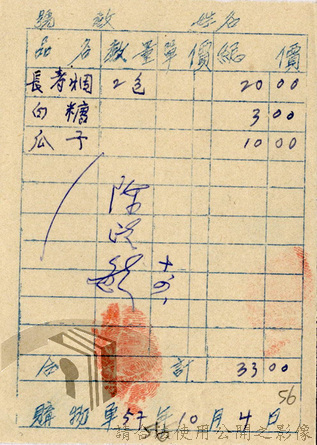 號數 姓名
品名 數量 單價 總價
長壽烟 2包 20 00
白糖 3 00
瓜子 10 00
合計 33 00
56
購物單 57年10月4日
請合法使用公開之影像